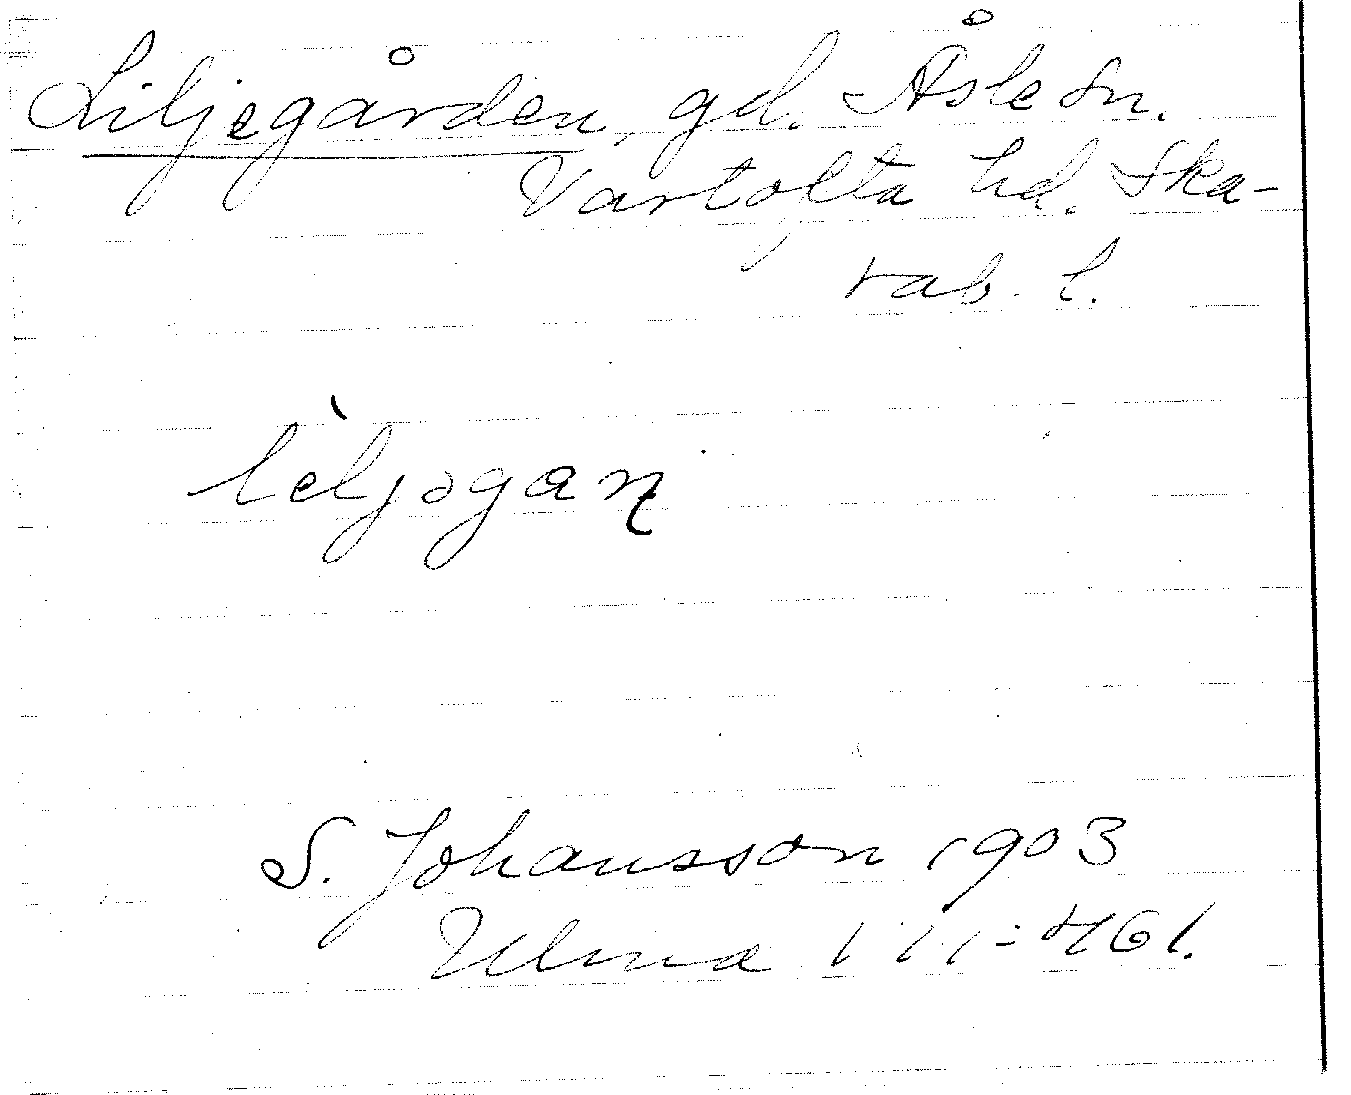 Liljegården, gd. Åsle sn.
Vartofta hd. Ska-
rab. l.
lèljəgaɳ
S. Johansson 1903
Ulma 111:461.